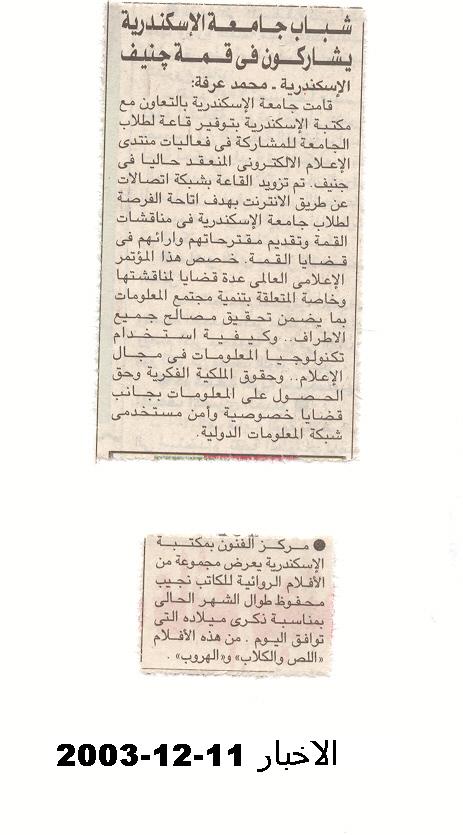 شباب جامعة الإسكندرية
يشاركون فى قمة چنيف
الإسكندرية ـ محمد عرفة:
قامت جامعة الإسكندرية بالتعاون مع
مكتبة الإسكندرية بتوفير قاعة لطلاب
الجامعة للمشاركة فى فعاليات منتدى
الإعلام الالكترونى المنعقد حاليا فى
جنيف. تم تزويد القاعة بشبكة اتصالات
عن طريق الانترنت بهدف اتاحة الفرصة
لطلاب جامعة الإسكندرية فى مناقشات
القمة وتقديم مقترحاتهم وارائهم فى
قضايا القمة. خصص هذا المؤتمر
الإعلامى العالمى عدة قضايا لمناقشتها
وخاصة المتعلقة بتنمية مجتمع المعلومات
بما يضمن تحقيق مصالح جميع
الاطراف.. وكيفية استخدام
تكنولوجيا المعلومات فى مجال
الإعلام.. وحقوق الملكية الفكرية وحق
الحصول على المعلومات بجانب
قضايا خصوصية وأمن مستخدمى
شبكة المعلومات الدولية.
● مركز الفنون بمكتبة
الإسكندرية يعرض مجموعة من
الأفلام الروائية للكاتب نجيب
محفوظ طوال الشهر الحالى
بمناسبة ذكرى ميلاده التى
توافق اليوم . من هذه الأفلام
«اللص والكلاب» و«الهروب» .
الاخبار 11-12-2003